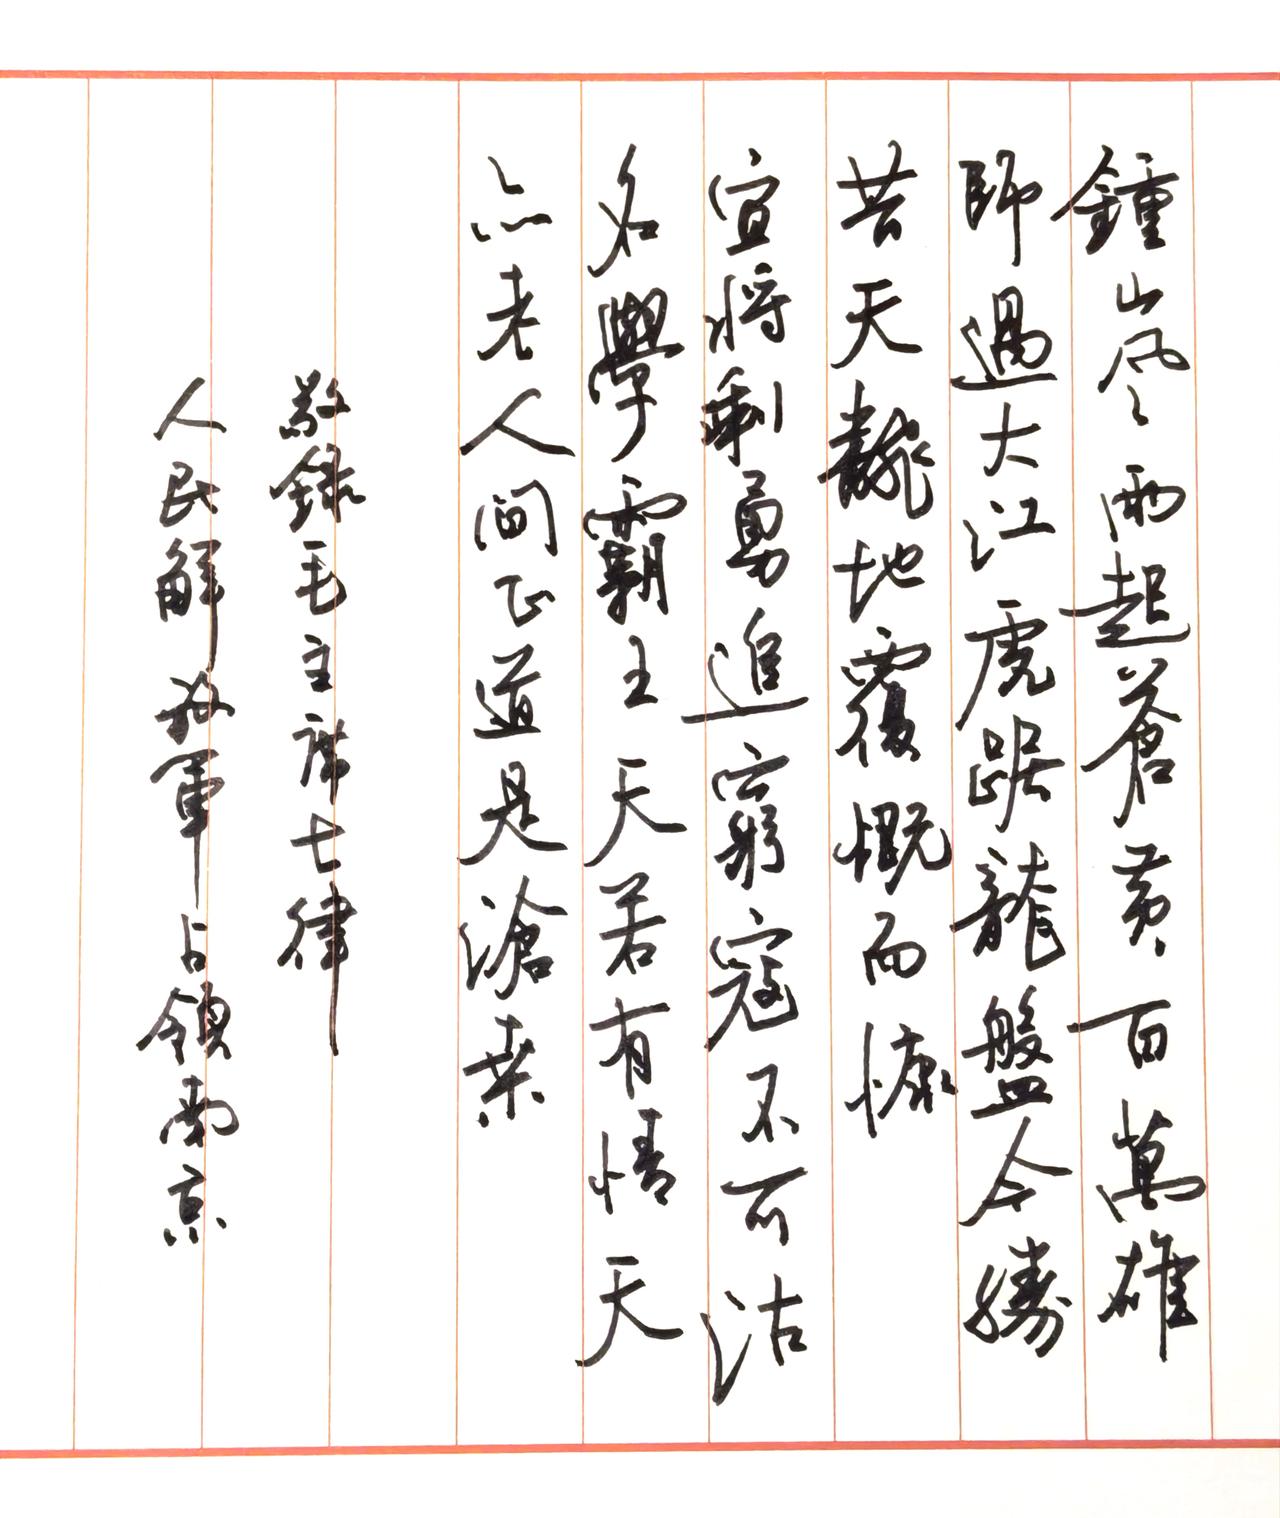 鍾山风雨起蒼黄百萬雄
師過大江虎踞龍盤今勝
昔天翻地覆慨而慷
宜将剩勇追窮寇不可沽
名學霸王天若有情天
亦老人間正道是滄桑
敬錄毛主席七律
人民解放軍占領南京